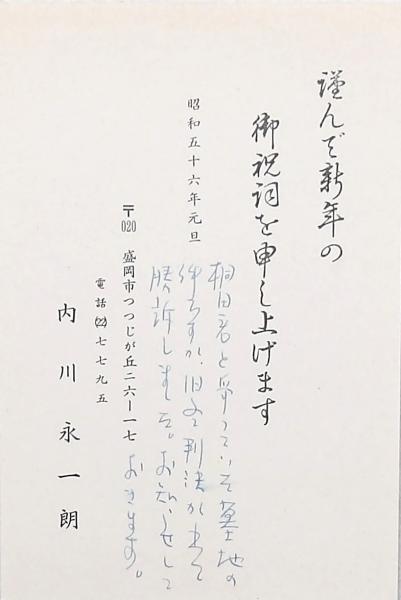 謹んで新年の
御祝詞を申し上げます
昭和五十六年元旦
桐田君と争っていた墓地の
件ですが、旧 判決が出て
勝訴しました。お知らせして
おきます。
〒020 盛岡市つつじが丘二六ー一七
電話㉒七七九五
内川永一朗